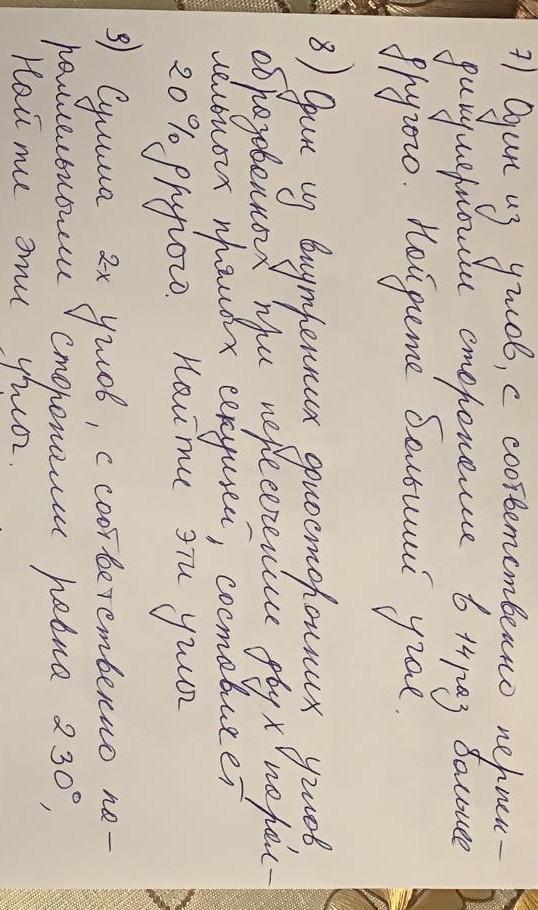 7) Один из углов, с соответственно перпен-
дикулярными сторонами в 14 раз больше
другого. Найдите больший угол.
8) Один из внутренних односторонних углов
образованных при пересечение двух парал-
лельных прямых секущей, составляет
20% другого. Найти эти углы
9) Сумма 2х углов, с соответственно па-
раллельными сторонами равна 230°,
Найти эти углы.